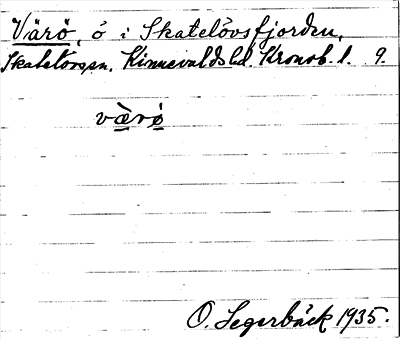 Värö, ö i Skatelövsfjorden,
Skatelövs sn. Kinnevalds hd. Kronob. l. 9.
värö
O. Segerbäck 1935.